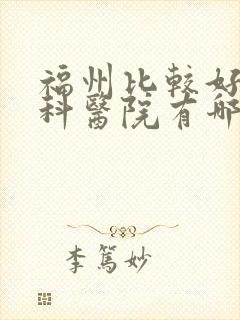 福州比較好
科醫院有哪
李篤妙